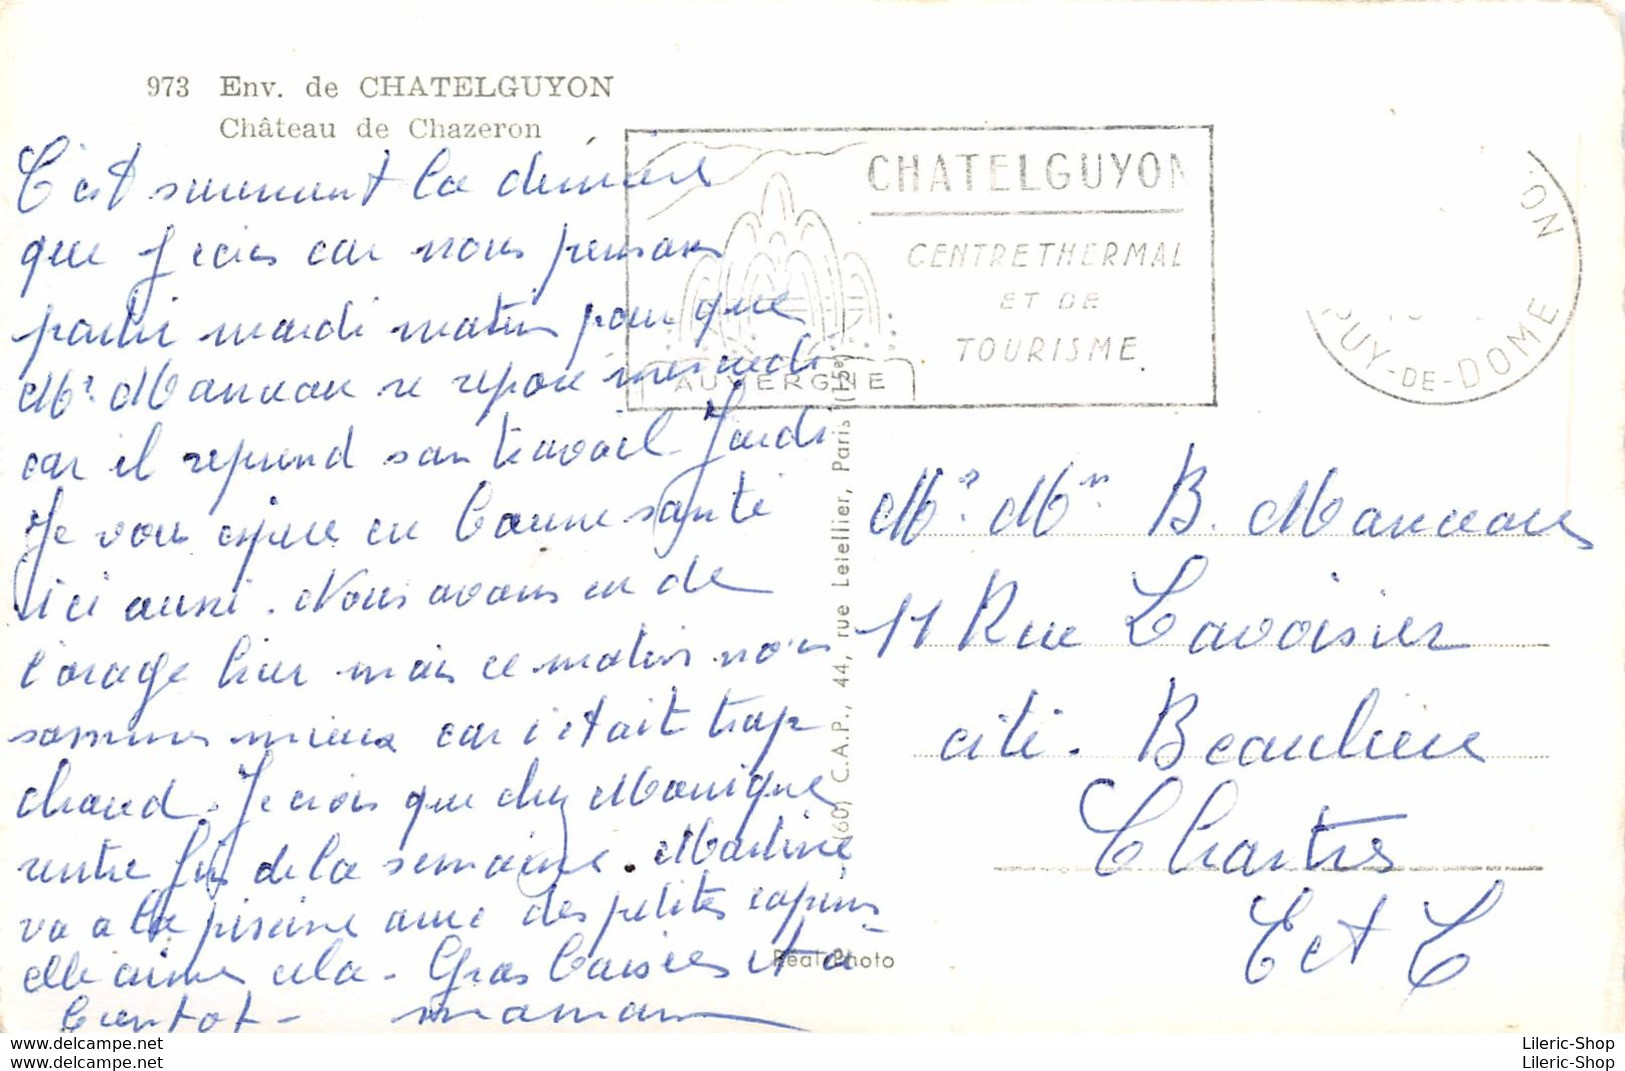 973 Env. de CHATELGUYON
Château de Chazeron
C'est surement la dernière
que j'ecris car nous pensons
partir mardi matin pour que
Mr. Manceau se repose mercredi
car il reprend son travail Jeudi
Je vous espère en bonne santé
ici aussi. Nous avons eu de
l'orage hier mais ce matin nous
sommes mieux car c'était trop
chaud. Je crois que chez Monique
rentre fin de la semaine. Martine
va a la piscine avec des petites copines
elle aime cela - Gros baisers et à
bientot - maman
CHATELGUYON
CENTRE THERMAL
ET DE
TOURISME
AUVERGNE
ON.
PUY-DE-DOME
(60) C.A.P., 44, rue Letellier, Paris (15e)
Réal-Photo
Mr. Mm B. Manceau
11 Rue Lavoisier
cité. Beaulieu
Chartres
E et L
Lileric-Shop
Lileric-Shop
www.delcampe.net
www.delcampe.net